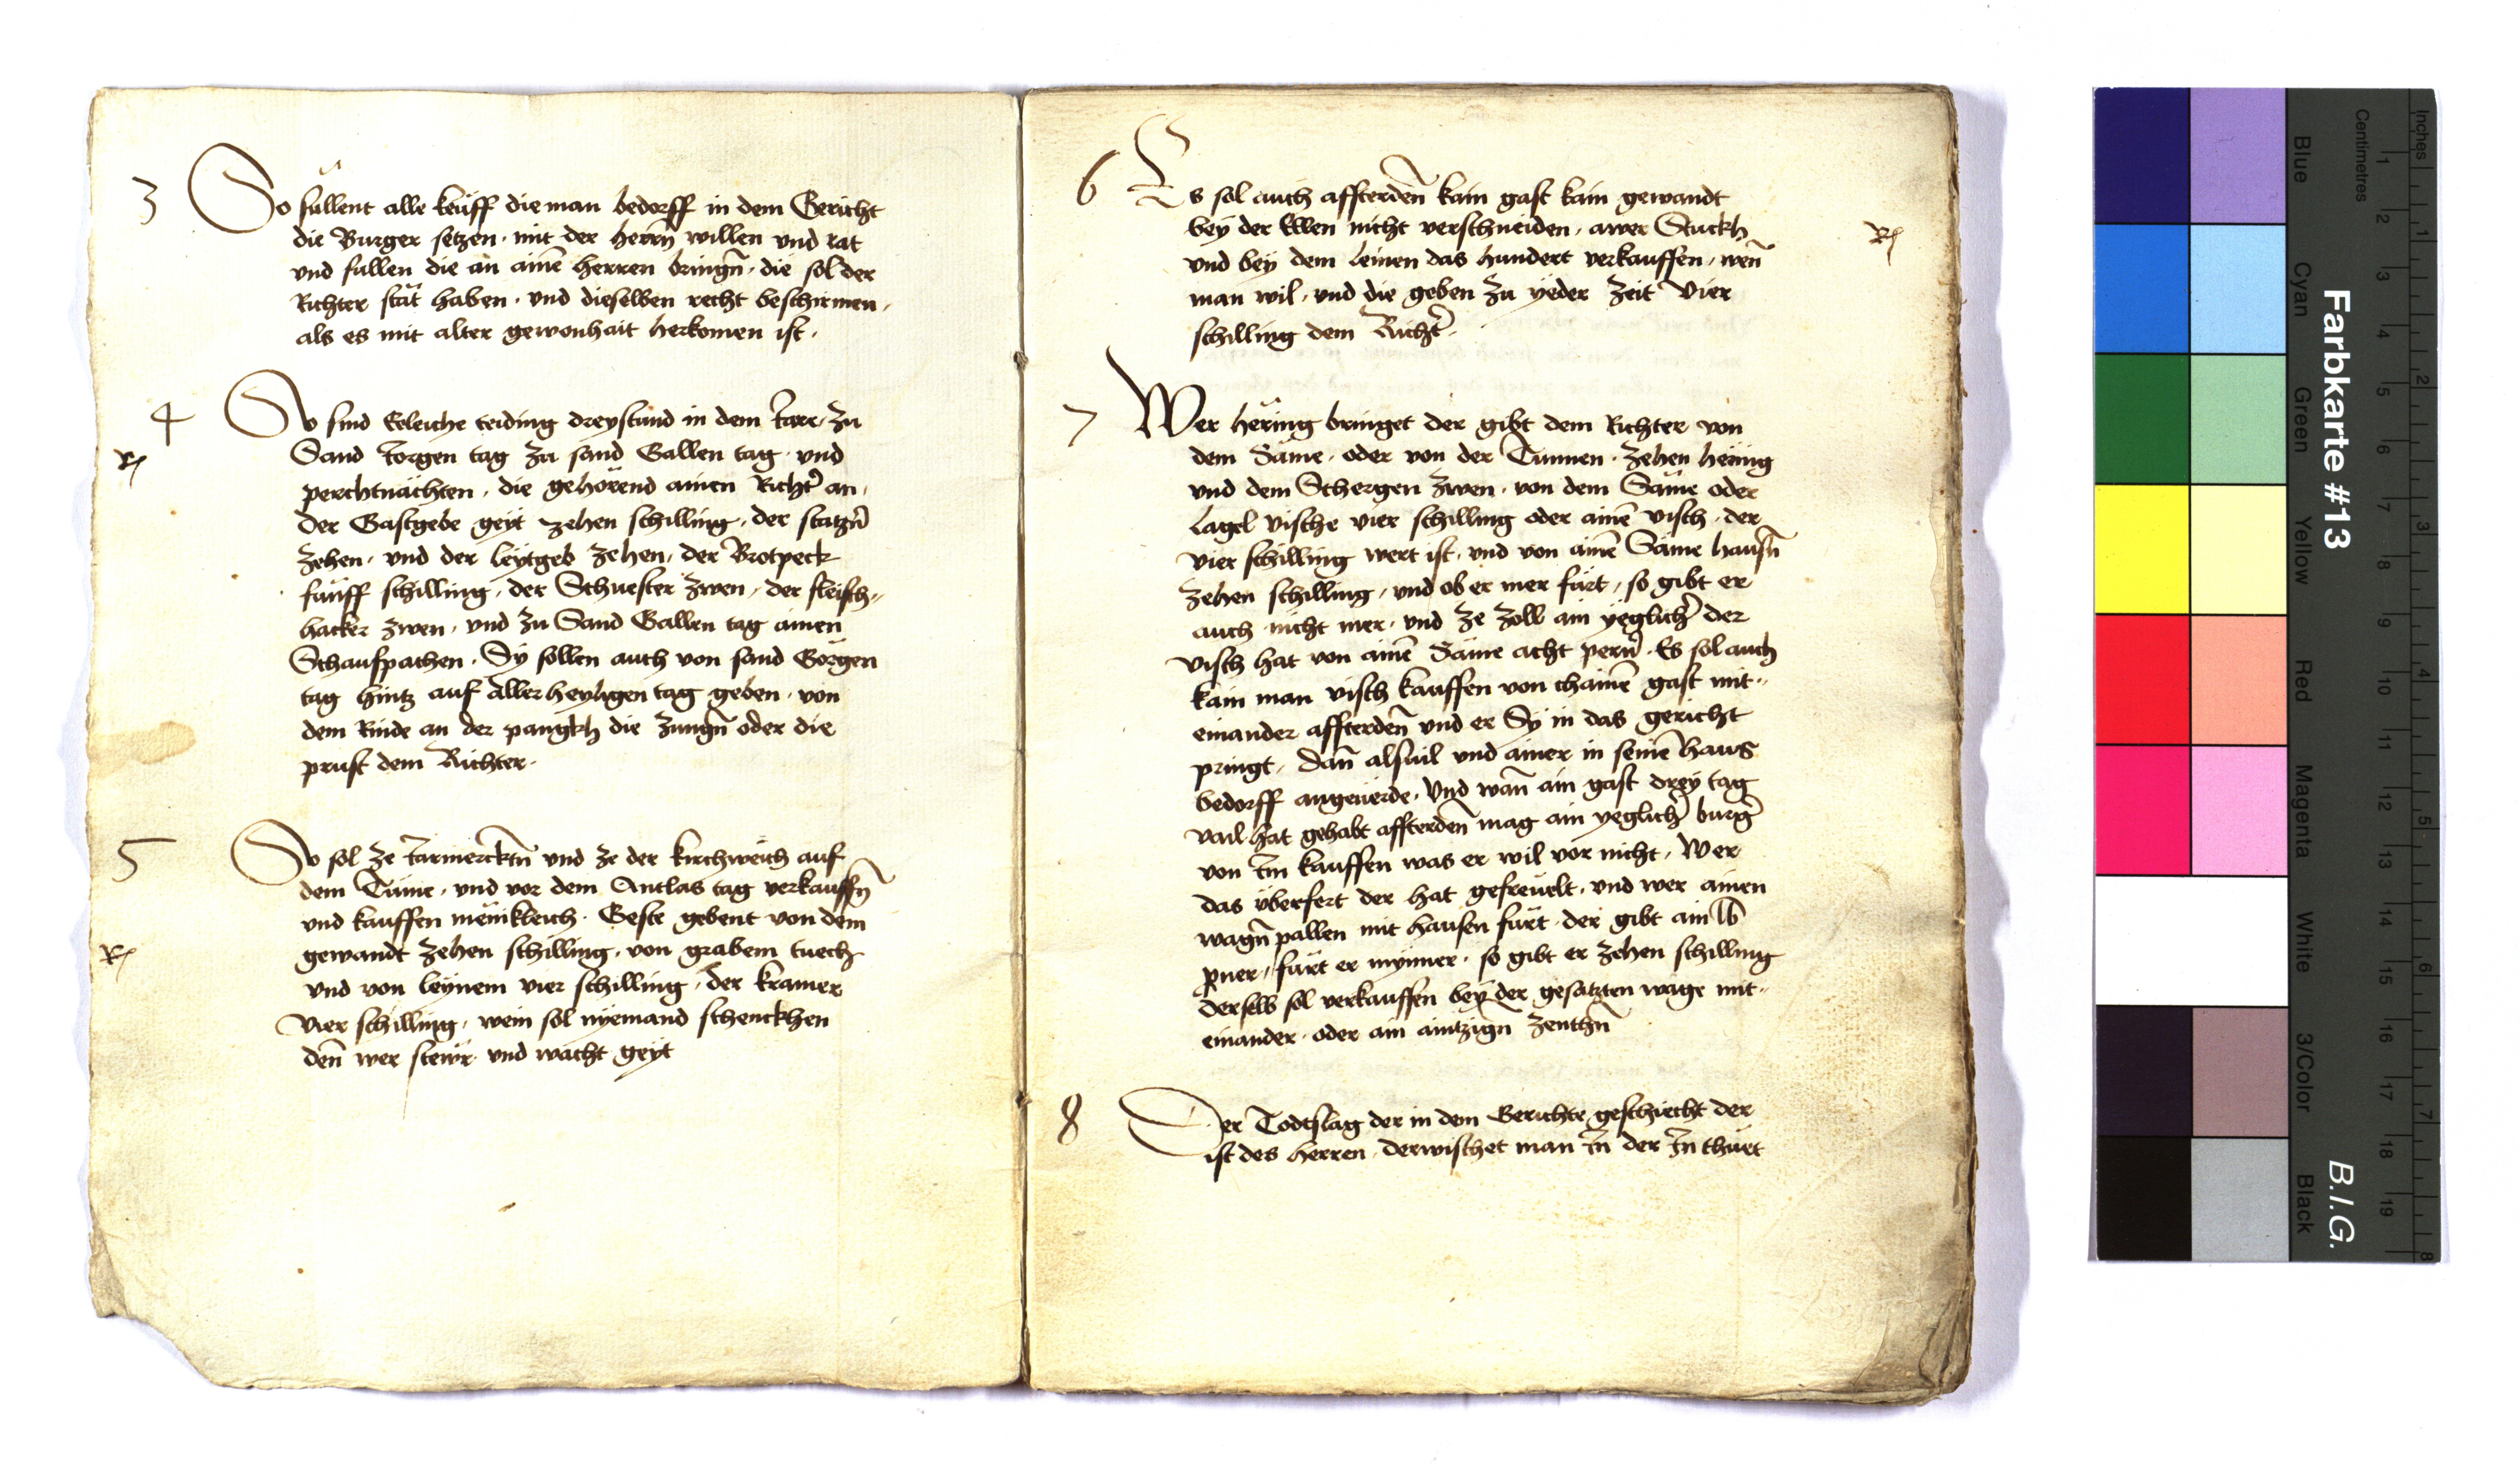 3 So sullent alle keüff die man bedorff in dem Gericht
die Burger setzen · mit der herrn̄ willen vnd rat
vnd sullen die an ainē herren bringn̄ · die sol der
Richter stät haben · vnd dieselben recht beschirmen ·
als es mit alter gewonhait herkomen ist ·
4 So sind Eeleiche teiding dreystund in dem Iare · zu
R
Sand Iorgen tag zu sand Gallen tag · vnd
perchtnächten · die gehörend ainen Richt̄ an ·
Der Gastgebe geyt zehen schilling · der statzn̄
zehen · vnd der leytgeb zehen · der Brotpeck
fünff schilling · der Schuester zwen · der fleisch-
hacker zwen · vnd zu Sand Gallen tag ainen
Schaufpachen · Sy sollen auch von sand Görgen
tag hintz auf allerheyligen tag geben · von
dem Rinde an der pangkh die zungn̄ oder die
prust dem Richter ·
5 So sol ze Iarmercktn̄ vnd ze der kirchweich auf
dem Tüme · vnd vor dem Antlas tag verkauffn̄
vnd kauffen mënikleich · Geste gebent von dem
R
gewandt zehen schilling · von grabem tuech
vnd von leynem vier schilling · der kramer
Vier schilling · wein sol nyemand schenckhen
den̄ wer stewr vnd wacht geyt
6 Es sol auch affterden̄ kain gast kain gewandt
bey der Ellen nicht verschneiden · awer Stuckh
R
vnd bey dem leinen das hundert verkauffen · wen̄
man wil · vnd die geben zu yeder zeit Vier
schilling dem Richt̄ ·
7 Wer häring bringet der gibt dem Richter von
dem Säme · oder von der Tunnen · zehen hering
vnd dem Schergen zwen · von dem Säme oder
lagel vische vier schilling oder ainē visch · der
vier schilling wert ist · vnd von ainē Säme hausn̄
zehen schilling · vnd ob er mer fürt · so gibt er
auch nicht mer · vnd ze zoll ain yeglich̄ der
visch hat von ainē Säme acht pern̄ · Es sol auch
kain man visch kauffen von chainē gast mit-
einander affterden̄ vnd er Sy in das gericht
pringt · Dan̄ alsuil vnd ainer in seinē haus
bedorff angeuerde · Vnd wan̄ ain gast drey tag
vail hat gehabt affterden̄ mag ain yeglich̄ burḡ
von Im kauffen was er wil vor nicht · Wer
das überfert der hat gefreuelt · vnd wer ainen
wagn̄ pallen mit hausen fürt · der gibt ain lb
pner · fürt er mynner · so gibt er zehen schilling
derselb sol verkauffen bey der gesatzten wage mit-
einander · oder ain aintzign̄ zenthn̄
8 Der Todtslag der in dem Gerichte geschiecht der
ist des herren · derwischet man In̄ der In̄ thuet
Farbkarte #13
B.I.G.
Blue
Cyan
Green
Yellow
Red
Magenta
White
3/Color
Black
Centimetres
1 2 3 4 5 6 7 8 9 10 11 12 13 14 15 16 17 18 19
Inches
1 2 3 4 5 6 7 8